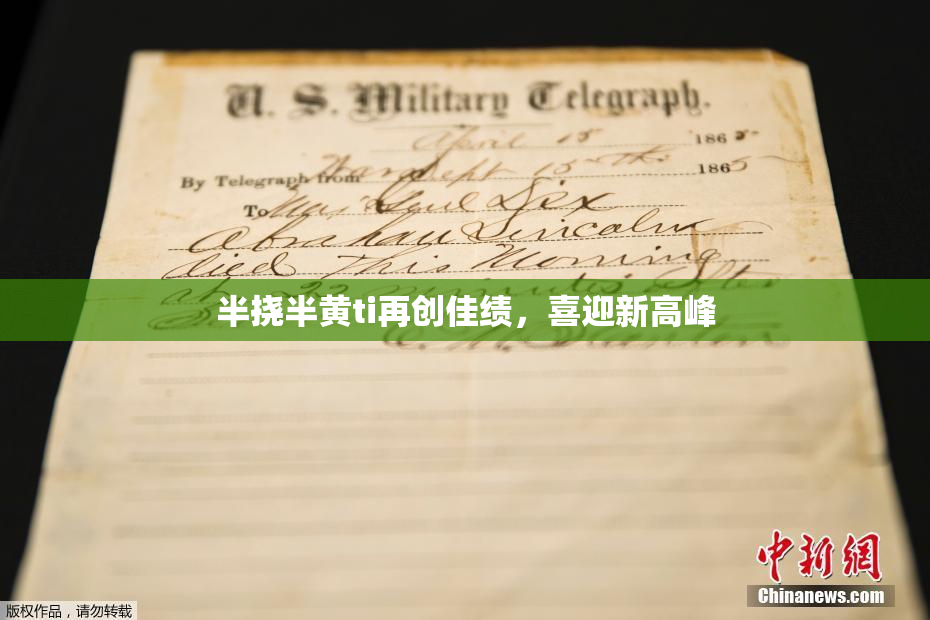 U. S. Military Telegraph.
April 15 1865
By Telegraph from War Dept 15th 1865
To Maj Genl Dix
Abraham Lincoln
died This Morning
at 22 minutes after
半挠半黄ti再创佳绩，喜迎新高峰
E. M. Stanton
中新网
Chinanews.com
版权作品，请勿转载